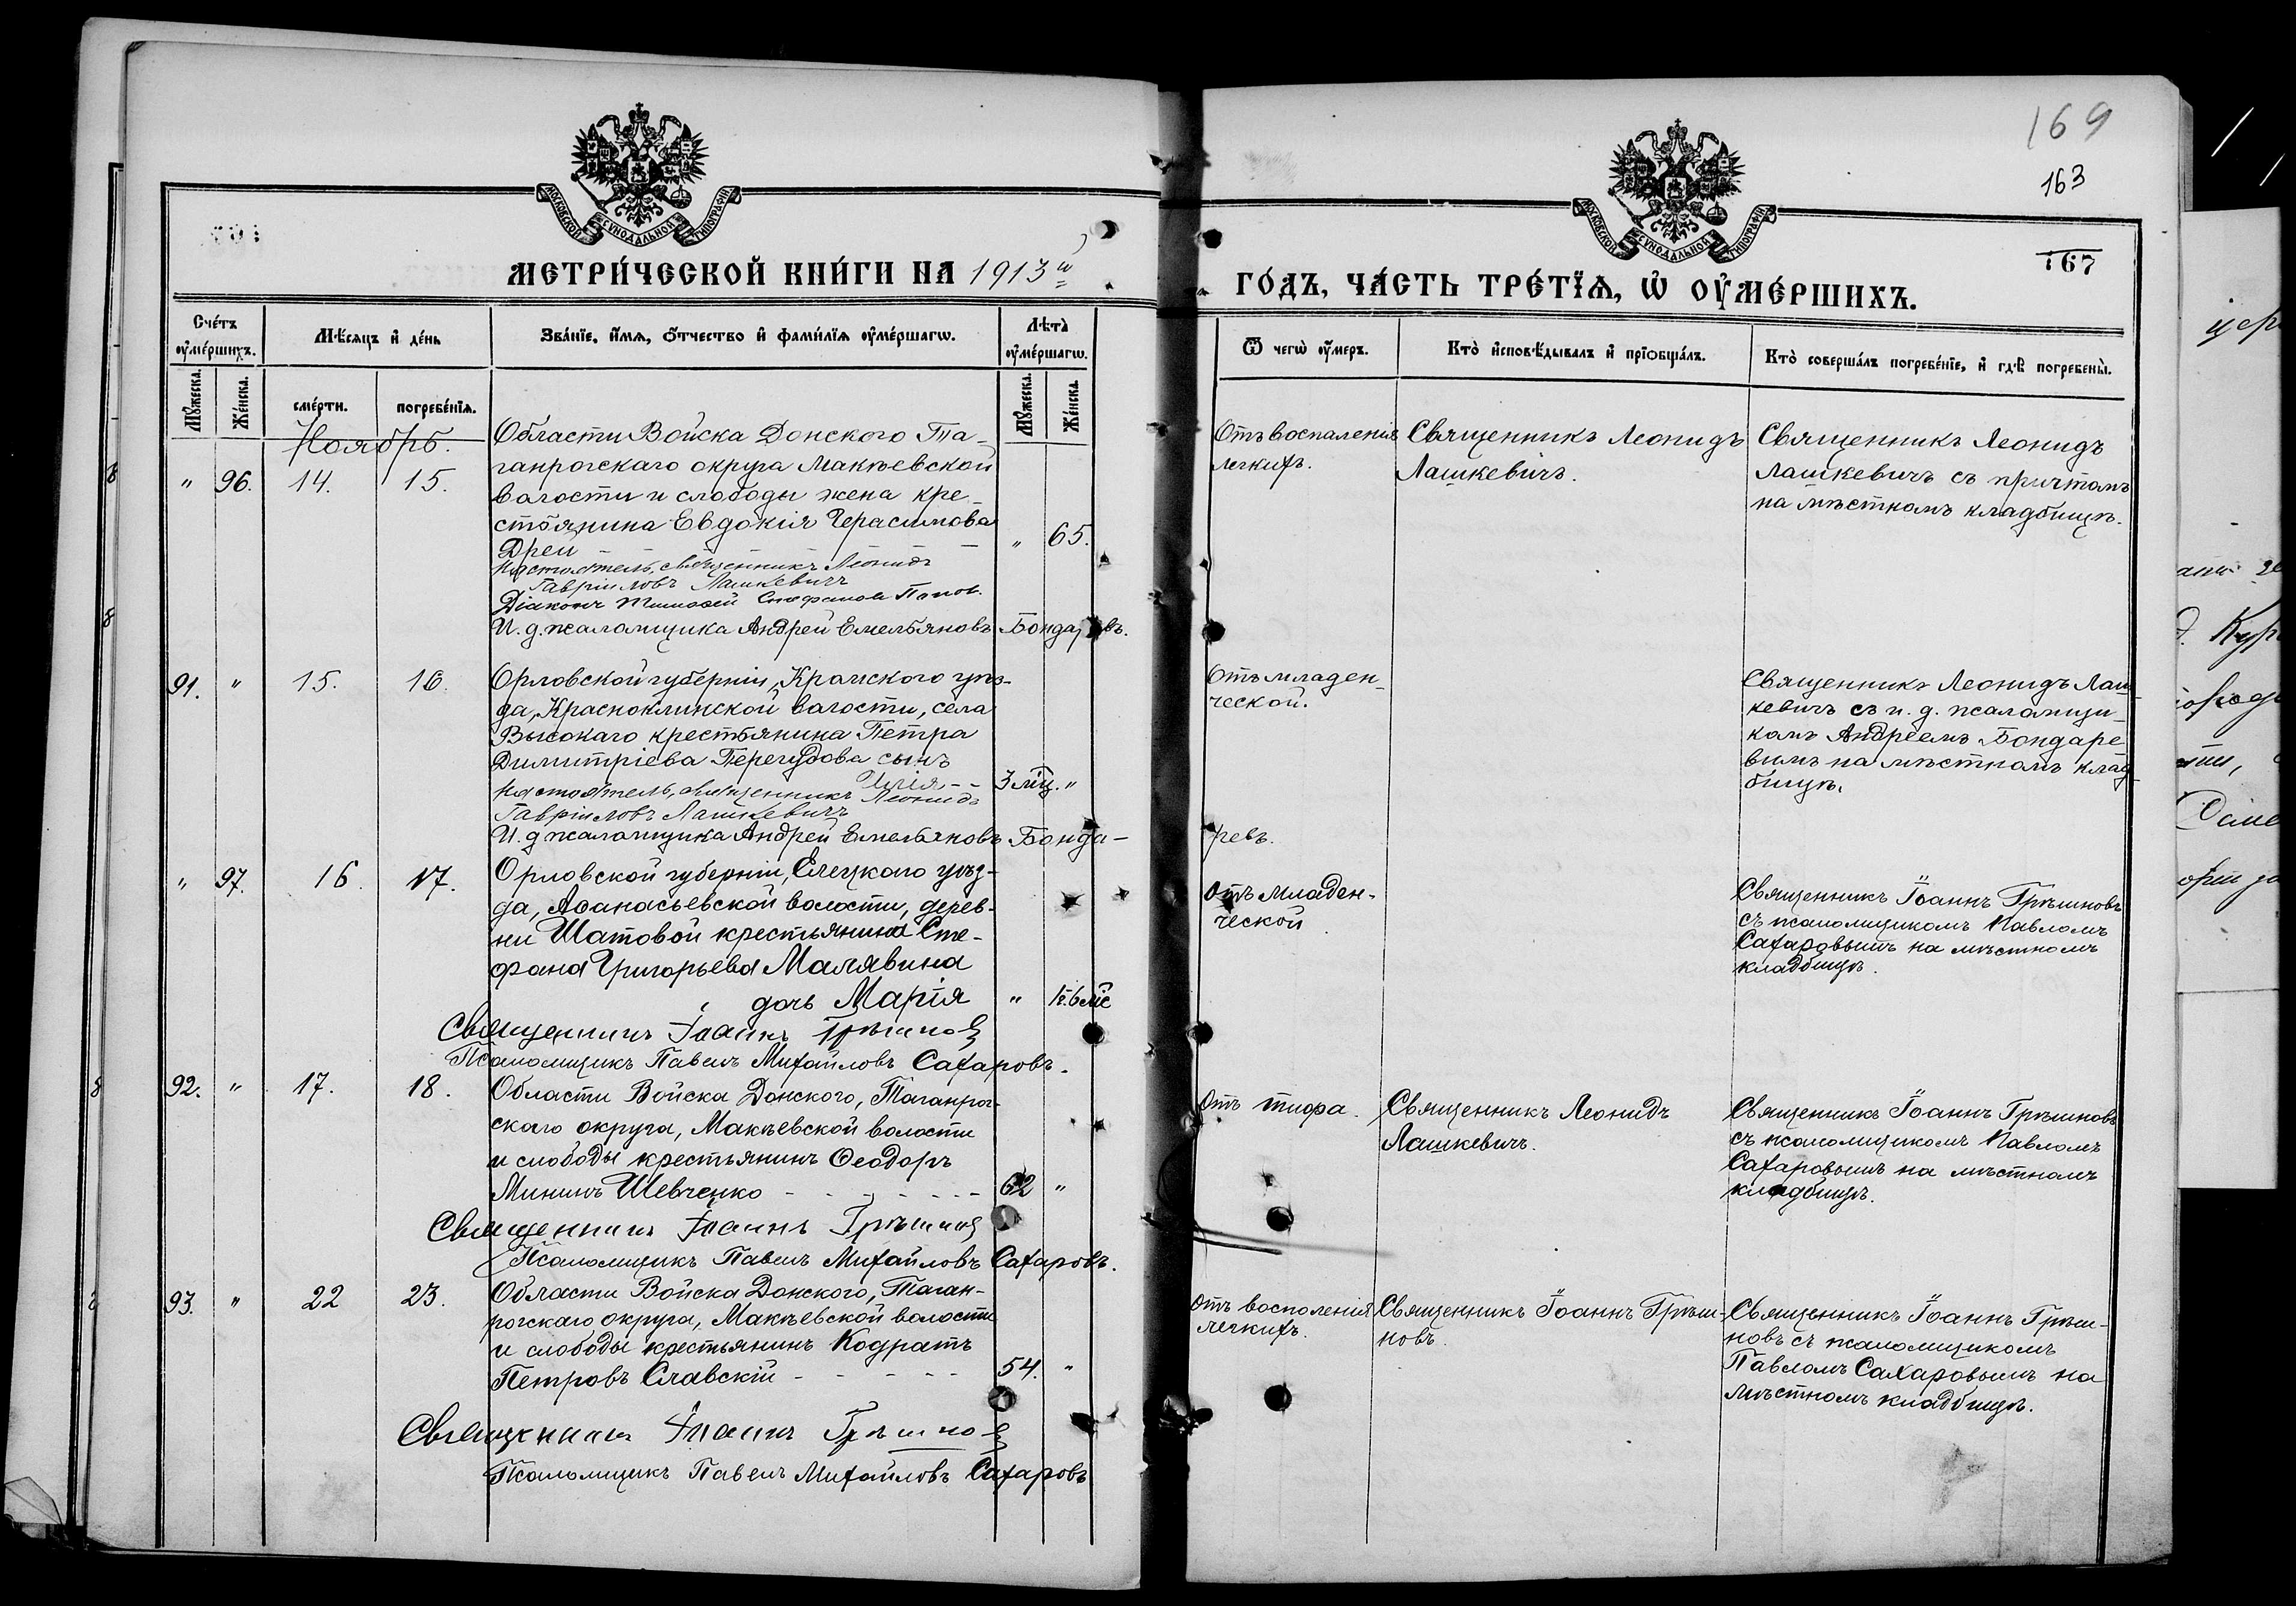 169
163
167
МОСКОВСКОЙ СѴНОДАЛЬНОЙ ТИПОГРАФІИ
МОСКОВСКОЙ СѴНОДАЛЬНОЙ ТИПОГРАФІИ
МЕТРИ́ЧЕСКОЙ КНИ́ГИ НА 1913й
ГО́ДЪ, ЧА́СТЬ ТРЕ́ТЇѦ, Ѡ҆ ОУ҆МЕ́РШИХЪ.
Сче́тъ оу҆ме́ршихъ.
Мѣ́сяцъ и҆ де́нь
Зва́нїе, и҆́мѧ, ѻ҆́тчество и҆ фами́лїѧ оу҆ме́ршагѡ.
Лѣ́та оу҆ме́ршагѡ.
Ѿ чегѡ̀ оу҆́меръ.
Кто̀ и҆сповѣ́дывалъ и҆ прїѡбща́лъ.
Кто̀ соверша́лъ погребе́нїе, и҆ гдѣ̀ погребены̀.
Мꙋ́жеска.
Же́нска.
сме́рти.
погребе́нїѧ.
Мꙋ́жеска.
Же́нска.
Ноябрь.
" 96. 14. 15.
Области Войска Донского Та-
ганрогскаго округа Макѣевской
волости и слободы жена кре-
стьянина Евдокія Герасимова
Дрей " 65.
Настоятель, священникъ Леонидъ
Гавріиловъ Лашкевичъ
Діаконъ Тимоѳей Стефановъ Попов.
И. д. псаломщика Андрей Емельяновъ Бондаревъ.
Отъ воспаленія
легкихъ.
Священникъ Леонидъ
Лашкевичъ.
Священникъ Леонидъ
Лашкевичъ съ причтомъ
на мѣстномъ кладбищѣ.
91. " 15. 16.
Орловской губерніи, Кромского уѣз-
да, Красноклинской волости, села
Высокаго крестьянина Петра
Димитріева Перегудова сынъ
Илія - - 3 мѣц. "
Настоятель, священникъ Леонидъ
Гавріиловъ Лашкевичъ
И. д. псаломщика Андрей Емельяновъ Бонда-
ревъ.
Отъ младен-
ческой.
Священникъ Леонидъ Лаш-
кевичъ съ и. д. псаломщи-
комъ Андреемъ Бондаре-
вымъ на мѣстномъ клад-
бищѣ.
" 97. 16. 17.
Орловской губерніи, Елецкаго уѣз-
да, Аѳанасьевской волости, дерев-
ни Шатовой крестьянина Сте-
фана Григорьева Малявина
дочь Марія "
Священникъ Іоаннъ Грѣшновъ
Псаломщикъ Павелъ Михайловъ Сахаровъ.
Отъ младен-
ческой
Священникъ Іоаннъ Грѣшновъ
съ псаломщикомъ Павломъ
Сахаровымъ на мѣстномъ
кладбищѣ.
92. " 17. 18.
Области Войска Донского, Таганрог-
скаго округа, Макѣевской волости
и слободы крестьянинъ Ѳеодоръ
Мининъ Шевченко - - - - - - - 62 "
Священникъ Іоаннъ Грѣшновъ
Псаломщикъ Павелъ Михайловъ Сахаровъ.
Отъ тифа.
Священникъ Леонидъ
Лашкевичъ.
Священникъ Іоаннъ Грѣшновъ
съ псаломщикомъ Павломъ
Сахаровымъ на мѣстномъ
кладбищѣ.
93. " 22 23.
Области Войска Донского, Таган-
рогскаго округа, Макѣевской волости
и слободы крестьянинъ Кодратъ
Петровъ Славскій - - - - - 54. "
Священникъ Іоаннъ Грѣшновъ
Псаломщикъ Павелъ Михайловъ Сахаровъ
Отъ восполенія
легкихъ.
Священникъ Іоаннъ Грѣш-
новъ.
Священникъ Іоаннъ Грѣш-
новъ съ псаломщикомъ
Павломъ Сахаровымъ на
мѣстномъ кладбищѣ.